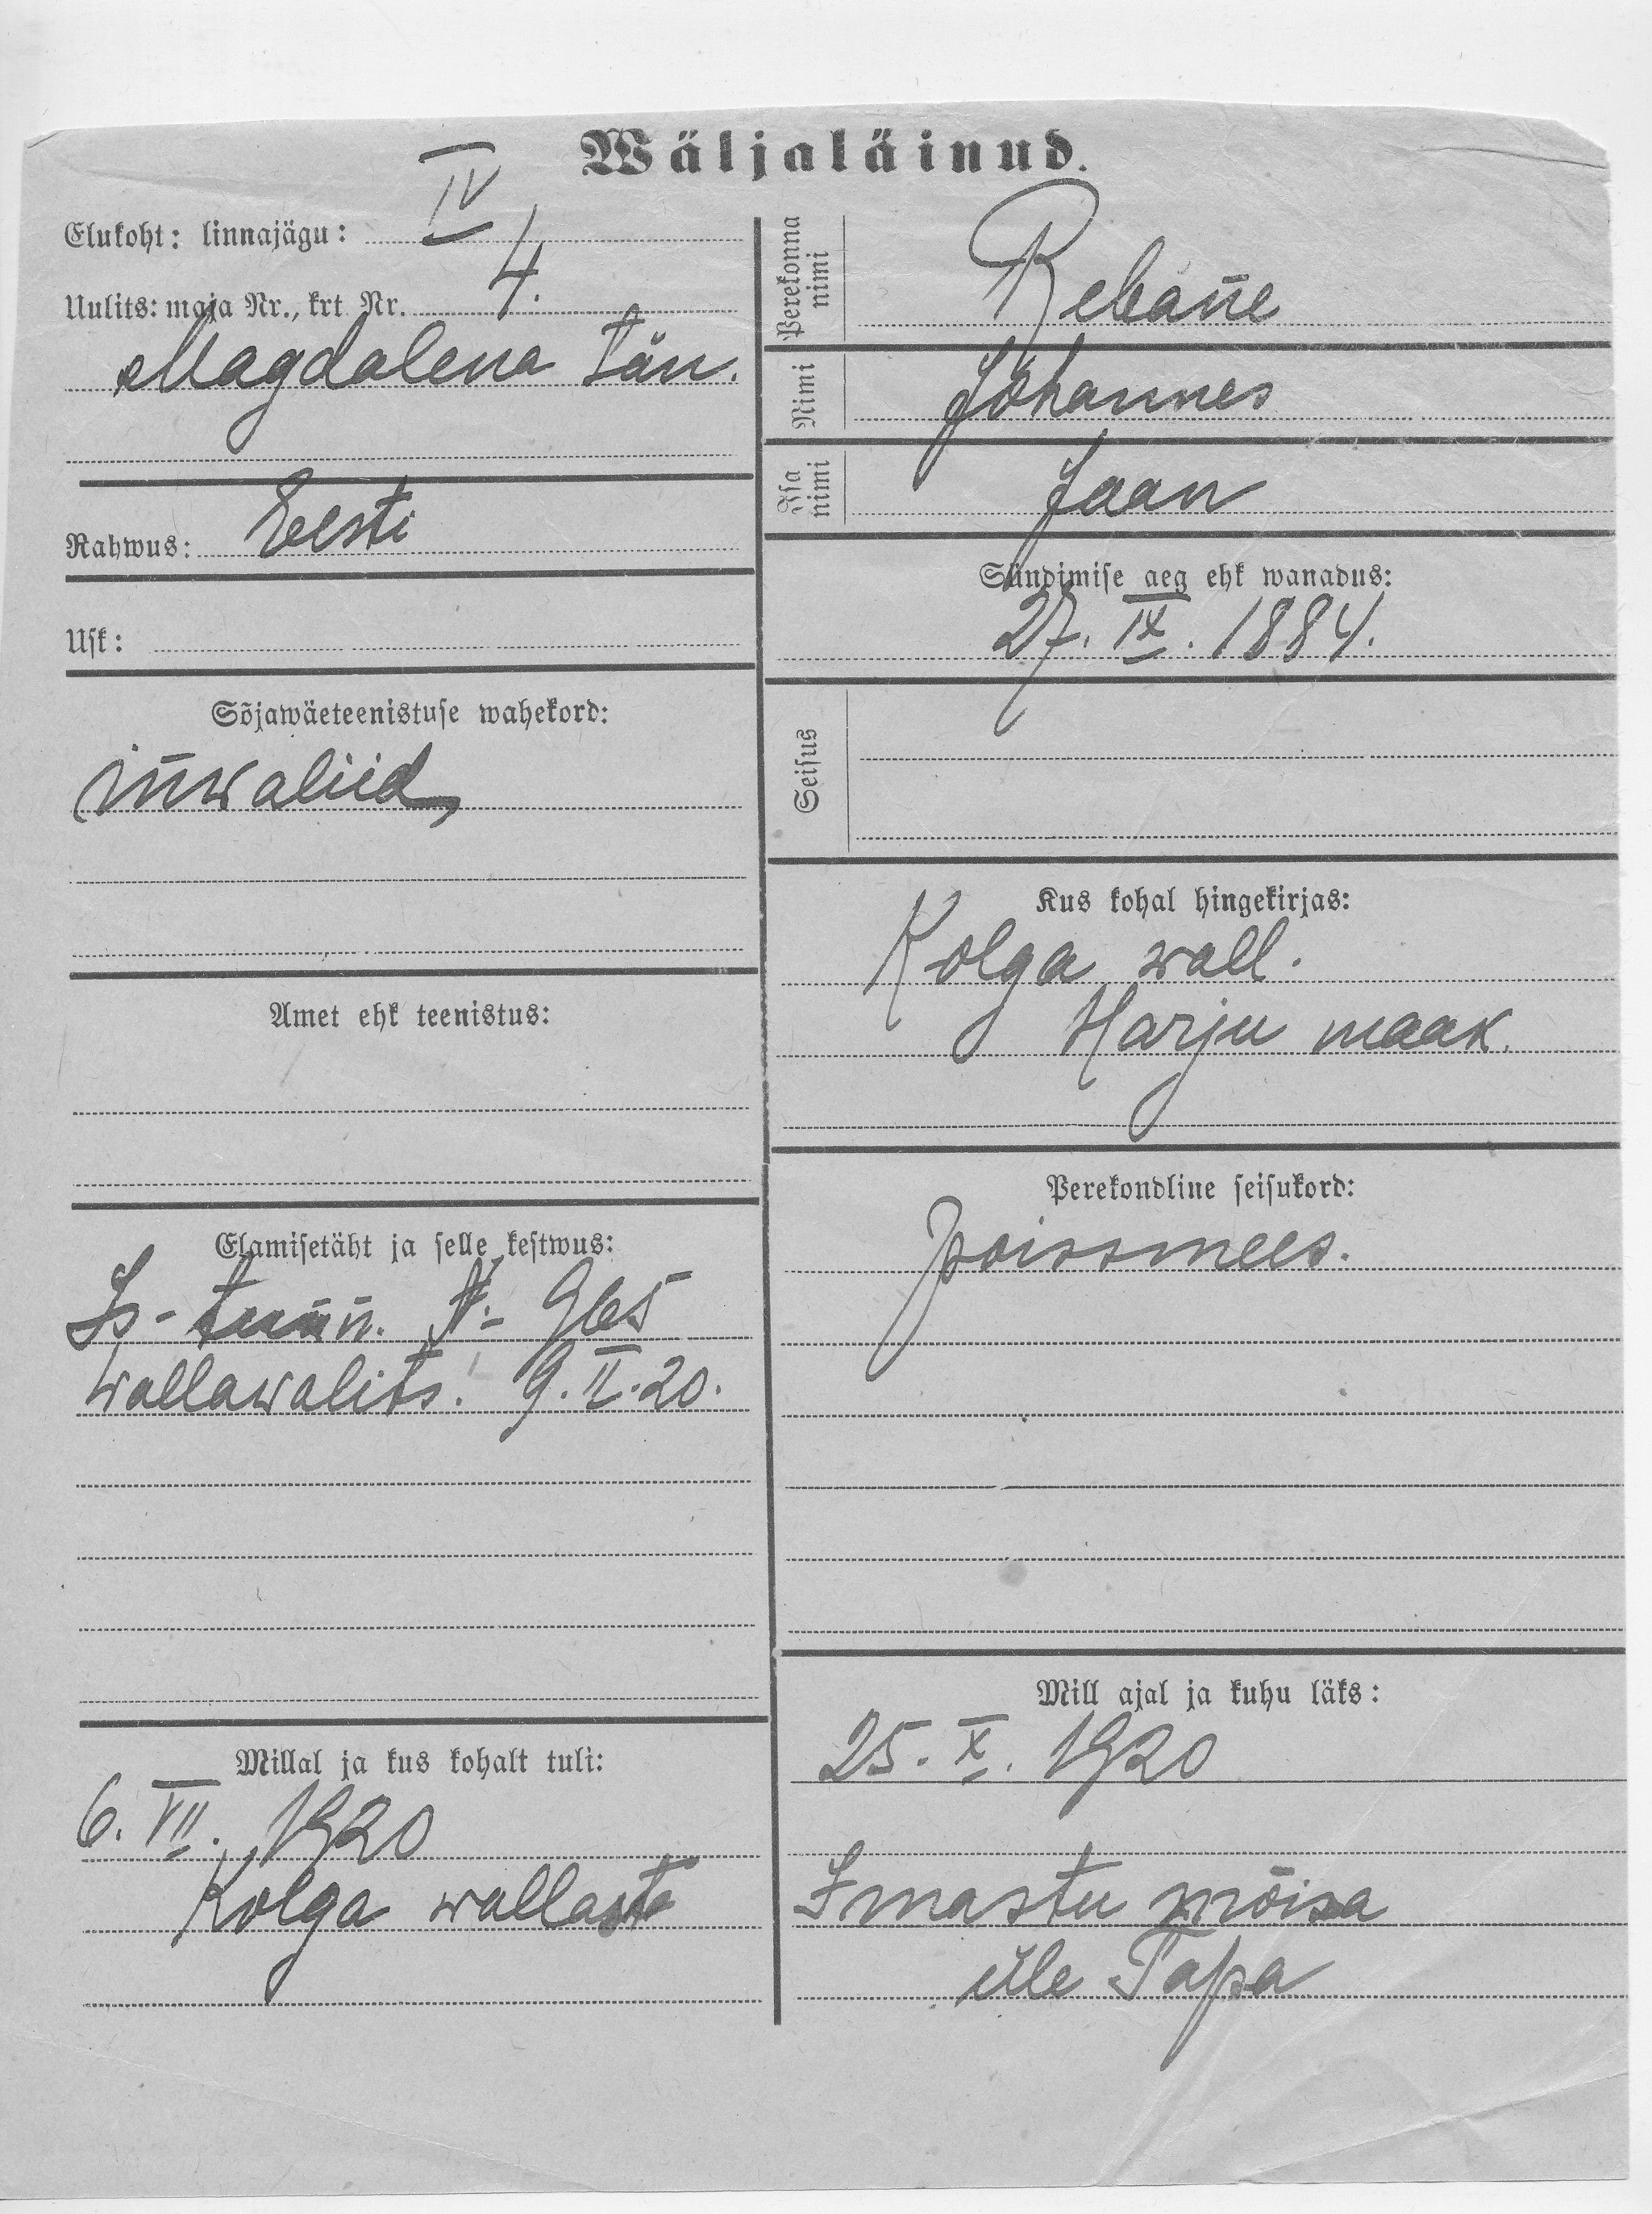 Wäljaläinud.
Elukoht: linnajägu: IV
Uulits: maja Nr., krt. Nr. 4.
Magdalena tän.
Rahwus: Eesti
Usk:
Sõjawäeteenistuse wahekord:
inwaliid
Amet ehk teenistus:
Elamisetäht ja selle kestwus:
Is-tunn. №- 965
Wallawalits. 9.II.20.
Millal ja kus kohalt tuli:
6. VII. 1920
Kolga wallast
Perekonna nimi
Rebane
Nimi
Johannes
Isa nimi
Jaan
Sündimise aeg ehk wanadus:
27. IX. 1884.
Seisus
Kus kohal hingekirjas:
Kolga wall.
Harju maak.
Perekondline seisukord:
poissmees.
Mill ajal ja kuhu läks:
25. X. 1920
Imastu mõisa
üle Tapa